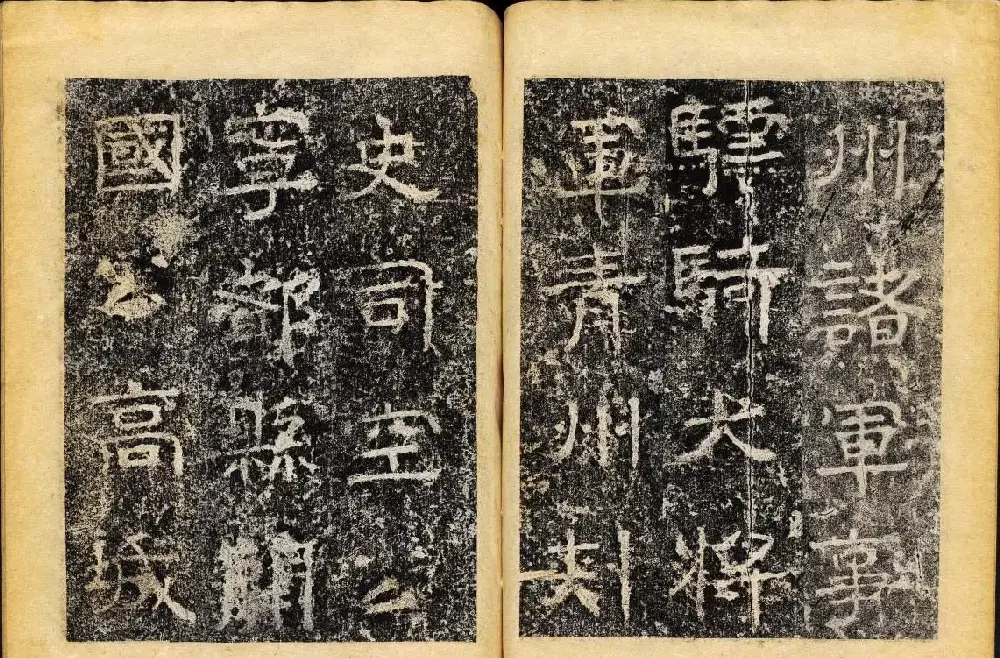 州諸軍事
驃騎大將
軍青州刺
史司空公
寧都縣開
國公高城